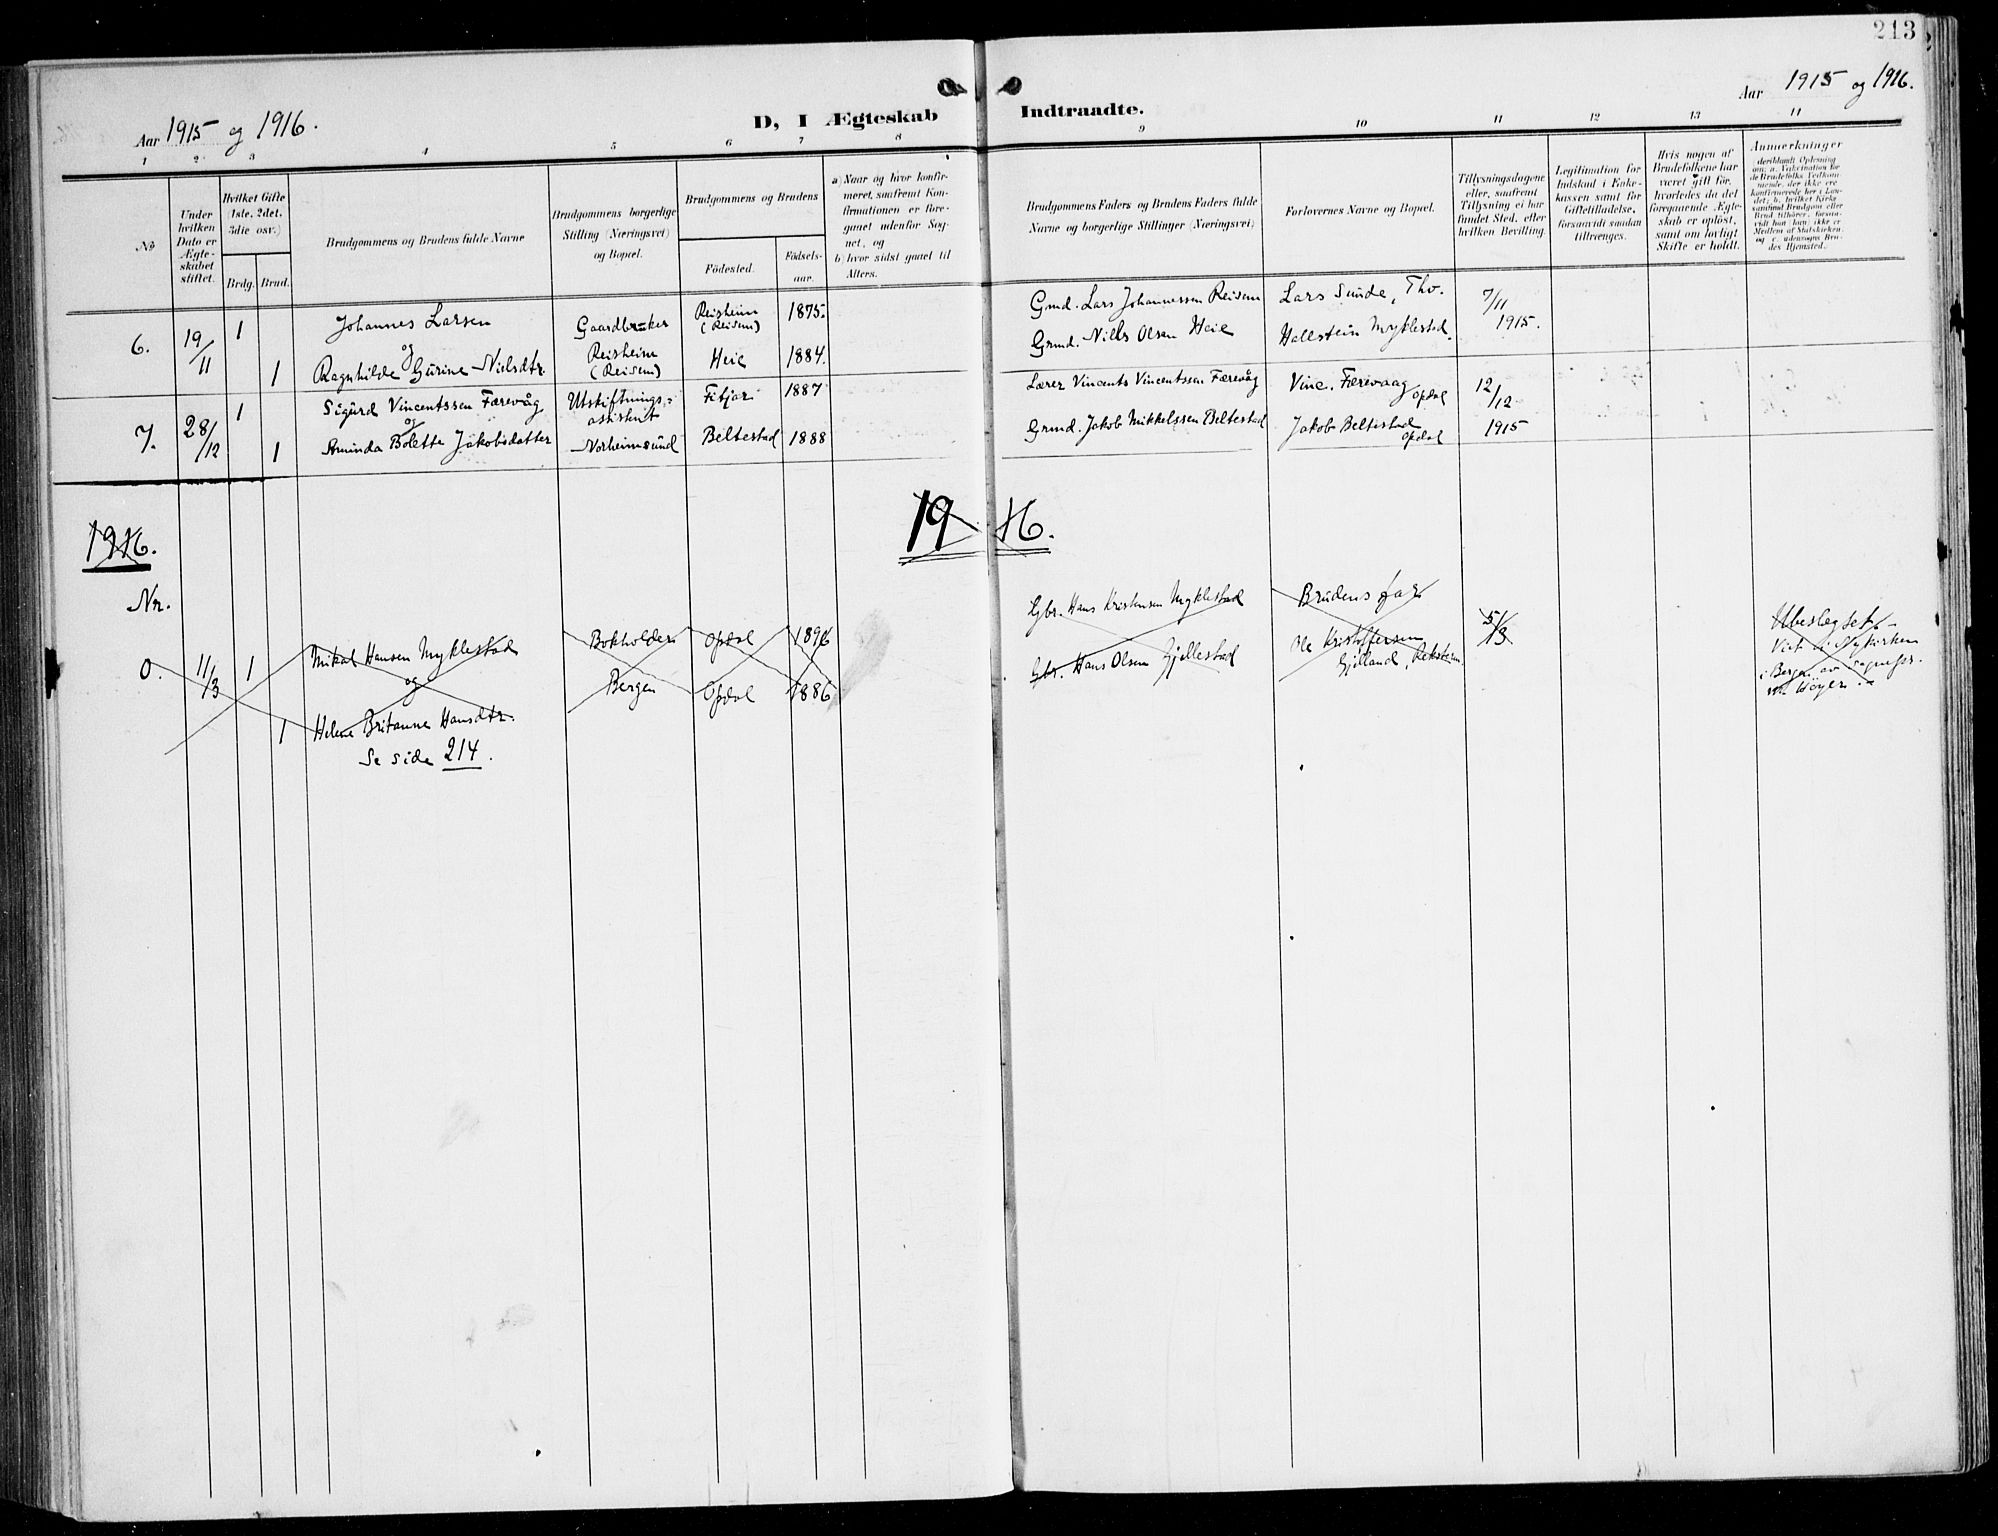 213
Aar 1915 og 1916.
D, I Ægteskab Indtraadte.
Aar 1915 og 1916.
1 2 3 4 5 6 7 8 9 10 11 12 13 14
No
Under hvilken Dato er Ægte-skabet stiftet.
Hvilket Gifte (1ste, 2det, 3die osv.)
Brdg. Brud.
Brudgommens og Brudens fulde Navne
Brudgommens borgerlige Stilling (Næringsvei) og Bopæl.
Brudgommens og Brudens
Födested.
Födsels-aar.
a) Naar og hvor konfir-meret, saafremt Kon-firmationen er fore-gaaet udenfor Sog-net, og
b) hvor sidst gaaet til Alters.
Brudgommens Faders og Brudens Faders fulde Navne og borgerlige Stillinger (Næringsvei)
Forlovernes Navne og Bopæl.
Tillysningsdagene eller, saafremt Tillysning ei har fundet Sted, efter hvilken Bevilling.
Legitimation for Indskud i Enke-kassen samt for Giftetilladelse, forsaavidt saadan tiltrænges.
Hvis nogen af Brudefolkene har været gift för, hvorledes da det foregaaende Ægte-skab er oplöst, samt om lovligt Skifte er holdt.
Anmerkninger
6. 19/11 1 Johannes Larsen Gaardbruker Reisheim (Reisem) 1875. Gmd. Lars Johannessen Reisem Lars Sunde, Thv. 7/11 1915.
og
1 Ragnhilde Gurine Nielsdtr. Reisheim (Reisem) Heie 1884. Grmd. Nills Olsen Heie Hallstein Myklestad.
7. 28/12 1 Sigurd Vincentssen Færevåg Utskiftnings-assistent Fitjar 1887 Lærer Vincents Vincentssen Færevåg Vinc. Færevaag Opdal 12/12 1915
og
1 Aminda Bolette Jakobsdatter Norheimsund Beltestad 1888 Grmd. Jakob Mikkelssen Beltestad Jakob Beltestad Opdal
1916.
1916.
Nr.
0. 11/3 1 Mikal Hansen Myklestad Bokholder Opdal 1896 Gbr. Hans Kristensen Myklestad Brudens far 5/3
og
1 Helene Britanne Hansdtr. Bergen Opdal 1886 Gbr. Hans Olsen Gjellestad Ole Kristoffersen Gjilland, Reksteren
Ubeslegtet. Viet i Nykirken i Bergen av sognepr. Høyer.
Se side 214.